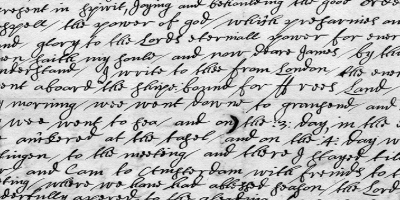 present in spirit, Joying and beholding the good order
the power of god, which preserves an
and glory to the Lords eternall power for ever
faith my soule, and now deare James, by th
understand I write to thee from London, the even
ent aboard the shipe bound for ff rees Land
y morning wee went downe to gravsend and
wee went to sea, and on the :3: day, in the e
e ankered at the tapel and on the :4: day w
lingen, to the meeting and there I stayed till
and Cam to Amsterdam, with frends to t
ting where we have had a blesed season, the Lord
derfully apered to the